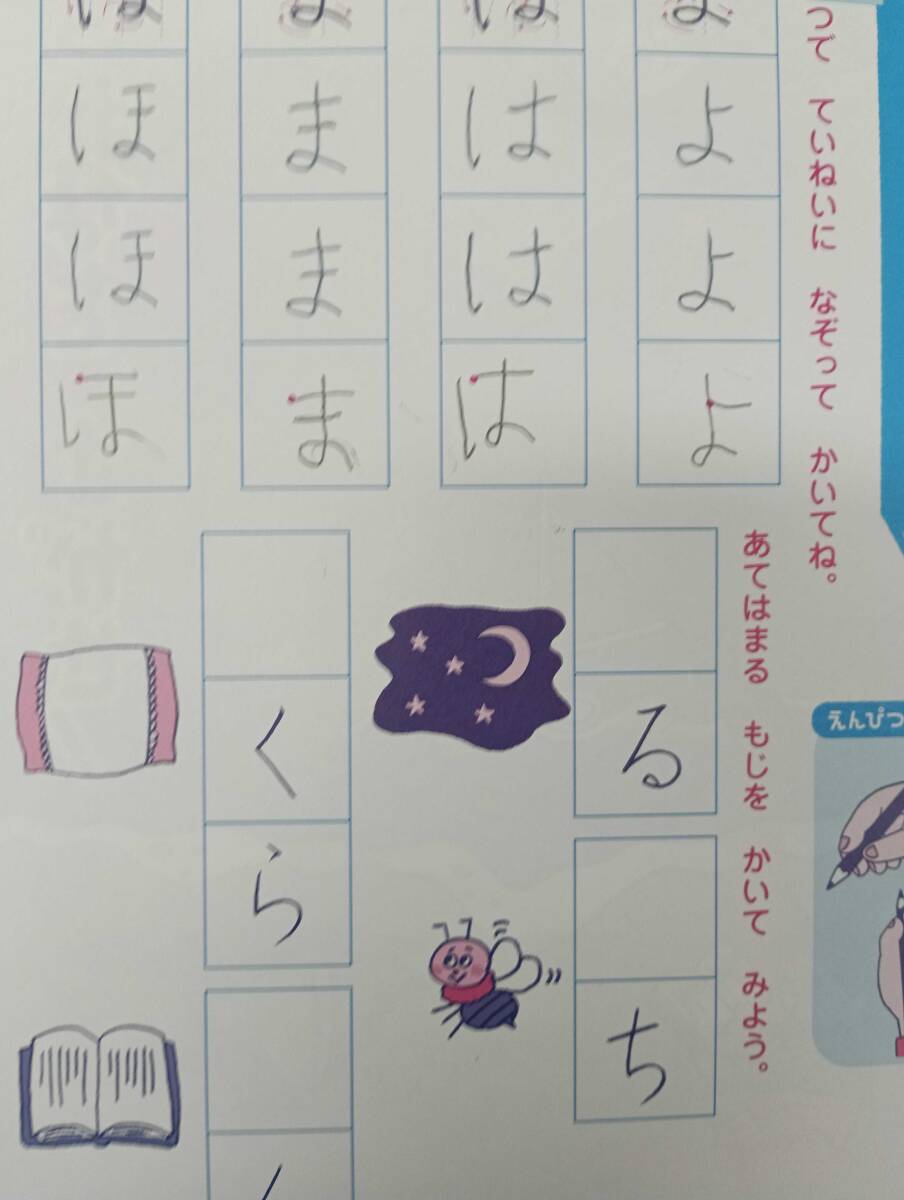 つで ていねいに なぞって かいてね。
よ
よ
よ
よ
は
は
は
は
ま
ま
ま
ま
ほ
ほ
ほ
ほ
あてはまる もじを かいて みよう。
る
ち
くら
えんぴつ